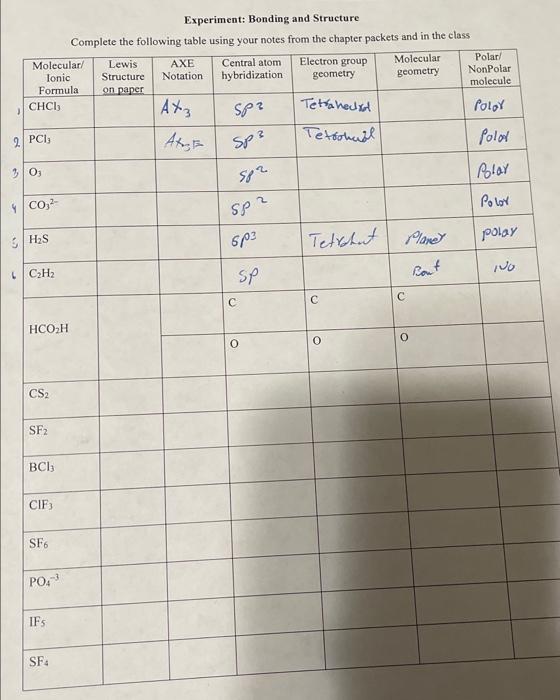 Experiment: Bonding and Structure
Complete the following table using your notes from the chapter packets and in the class
Molecular/ Ionic Formula Lewis Structure on paper AXE Notation Central atom hybridization Electron group geometry Molecular geometry Polar/ NonPolar molecule
1 CHCl₃ AX₃ SP³ Tetrahedral Polar
2 PCl₃ AX₃E SP³ Polar
3 O₃ SP² Polar
4 CO₃²⁻ SP² Polar
5 H₂S SP³ Planer polar
6 C₂H₂ SP Bent NO
C C C
HCO₂H
O O O
CS₂
SF₂
BCl₃
ClF₃
SF₆
PO₄⁻³
IF₅
SF₄